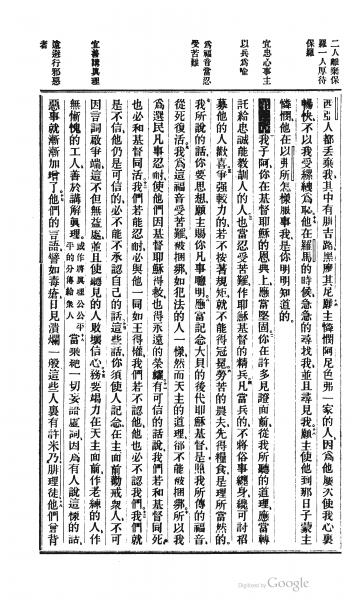 二人離棄保
羅一人厚待
保羅
宜忠心事主
以兵爲喻
爲福音當忍
受苦難
宜善講眞理
遠避行邪惡
者
西亞人都丟棄我其中有腓吉路黑摩其尼願主憐憫阿尼色弗一家的人因爲他屢次使我心裏
暢快不以我受縲絏爲恥他在羅馬的時候急急的尋找我並且尋見我願主使他到那日子蒙主
憐憫他在以弗所怎樣服事我是你明明知道的
第二章我子阿你在基督耶穌的恩典上應當堅固你在許多見證面前從我所聽的道理應當轉
託給忠誠能敎訓人的人也當忍受苦難作耶穌基督的精兵凡當兵的不將俗事纏身纔可討招
募他的人歡喜爭强較力的若不按著規矩就不能得冠冕勞苦的農夫先得糧食是理所當然的
我所說的話你要思想願主賜你凡事聰明應當記念大闢的後代耶穌基督是照我所傳的福音
從死復活我爲這福音受苦難被捆綁如犯法的人一樣然而天主的道理卻不能被捆綁所以我
爲選民凡事忍耐使他們因基督耶穌得救也得永遠的榮耀有可信的話說我們若和基督同死
也必和基督同活我們若能忍耐必與他一同如王得權我們若不認他他也必不認我們我們就
是不信他仍是可信的必不能不承認自己的話這些話你須使人記念在主面前勸戒衆人不可
因言詞啟爭端這不但無益處並且使聽見的人敗壞信心務要竭力在天主面前作老練的人作
無慚愧的工人善於講解眞理或作將眞理公公平平的分傳給衆人應當棄絕一切妄誕虛詞因爲有人說這樣的話
惡事就漸漸加增了他們的言語譬如毒瘡日見潰爛一般這些人裏有許米乃腓理徒他們曾背
Digitized by Google